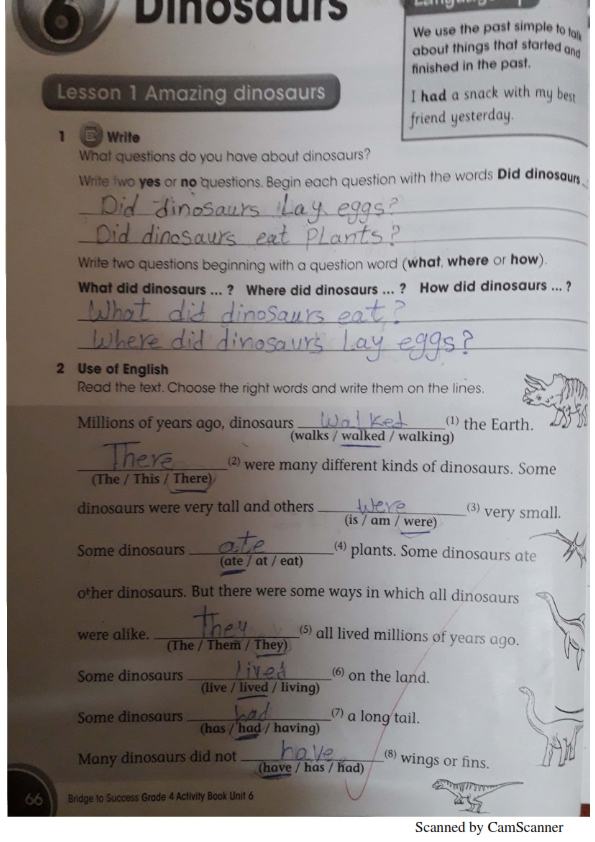 6 Dinosaurs
We use the past simple to talk
about things that started and
finished in the past.
I had a snack with my best
friend yesterday.
Lesson 1 Amazing dinosaurs
1 Write
What questions do you have about dinosaurs?
Write two yes or no questions. Begin each question with the words Did dinosaurs
Did dinosaurs Lay eggs?
Did dinosaurs eat Plants?
Write two questions beginning with a question word (what, where or how).
What did dinosaurs ... ? Where did dinosaurs ... ? How did dinosaurs ... ?
What did dinosaurs eat?
Where did dinosaurs Lay eggs?
2 Use of English
Read the text. Choose the right words and write them on the lines.
Millions of years ago, dinosaurs walked (1) the Earth.
(walks / walked / walking)
There (2) were many different kinds of dinosaurs. Some
(The / This / There)
dinosaurs were very tall and others were (3) very small.
(is / am / were)
Some dinosaurs ate (4) plants. Some dinosaurs ate
(ate / at / eat)
other dinosaurs. But there were some ways in which all dinosaurs
were alike. They (5) all lived millions of years ago.
(The / Them / They)
Some dinosaurs lived (6) on the land.
(live / lived / living)
Some dinosaurs had (7) a long tail.
(has / had / having)
Many dinosaurs did not have (8) wings or fins.
(have / has / had)
66 Bridge to Success Grade 4 Activity Book Unit 6
Scanned by CamScanner